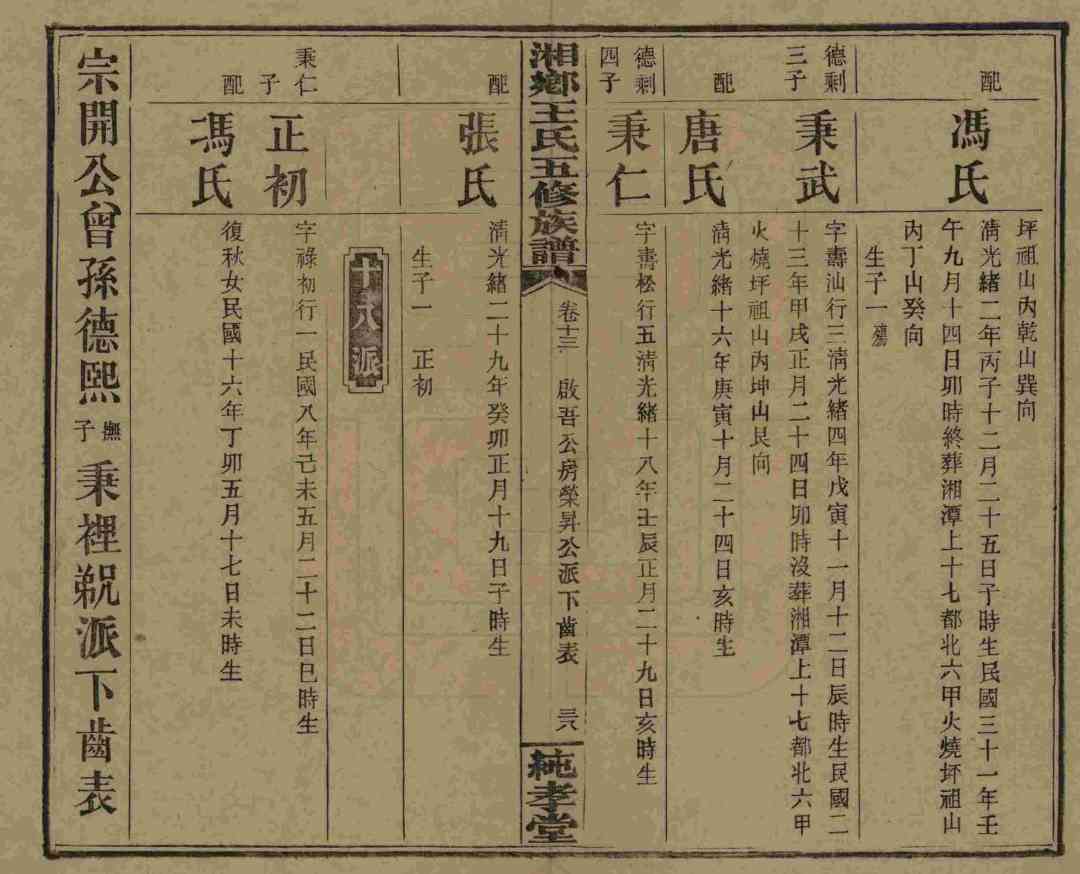 坪祖山內乾山巽向
配
馮氏
淸光緒二年丙子十二月二十五日子時生民國三十一年壬
午九月十四日卯時終葬湘潭上十七都北六甲火燒坪祖山
內丁山癸向
生子一 殤
德剩
三子
秉武
字壽汕行三淸光緒四年戊寅十一月十二日辰時生民國二
十三年甲戌正月二十四日卯時沒葬湘潭上十七都北六甲
火燒坪祖山內坤山艮向
配
唐氏
淸光緒十六年庚寅十月二十四日亥時生
德剩
四子
秉仁
字壽松行五淸光緒十八年壬辰正月二十九日亥時生
湘鄕王氏五修族譜
卷十三 啟吾公房榮昇公派下齒表 三八
純孝堂
配
張氏
淸光緒二十九年癸卯正月十九日子時生
生子一 正初
十八派
秉仁
子
正初
字祿初行一民國八年己未五月二十二日巳時生
配
馮氏
復秋女民國十六年丁卯五月十七日未時生
宗開公曾孫德熙撫子秉裡繼派下齒表